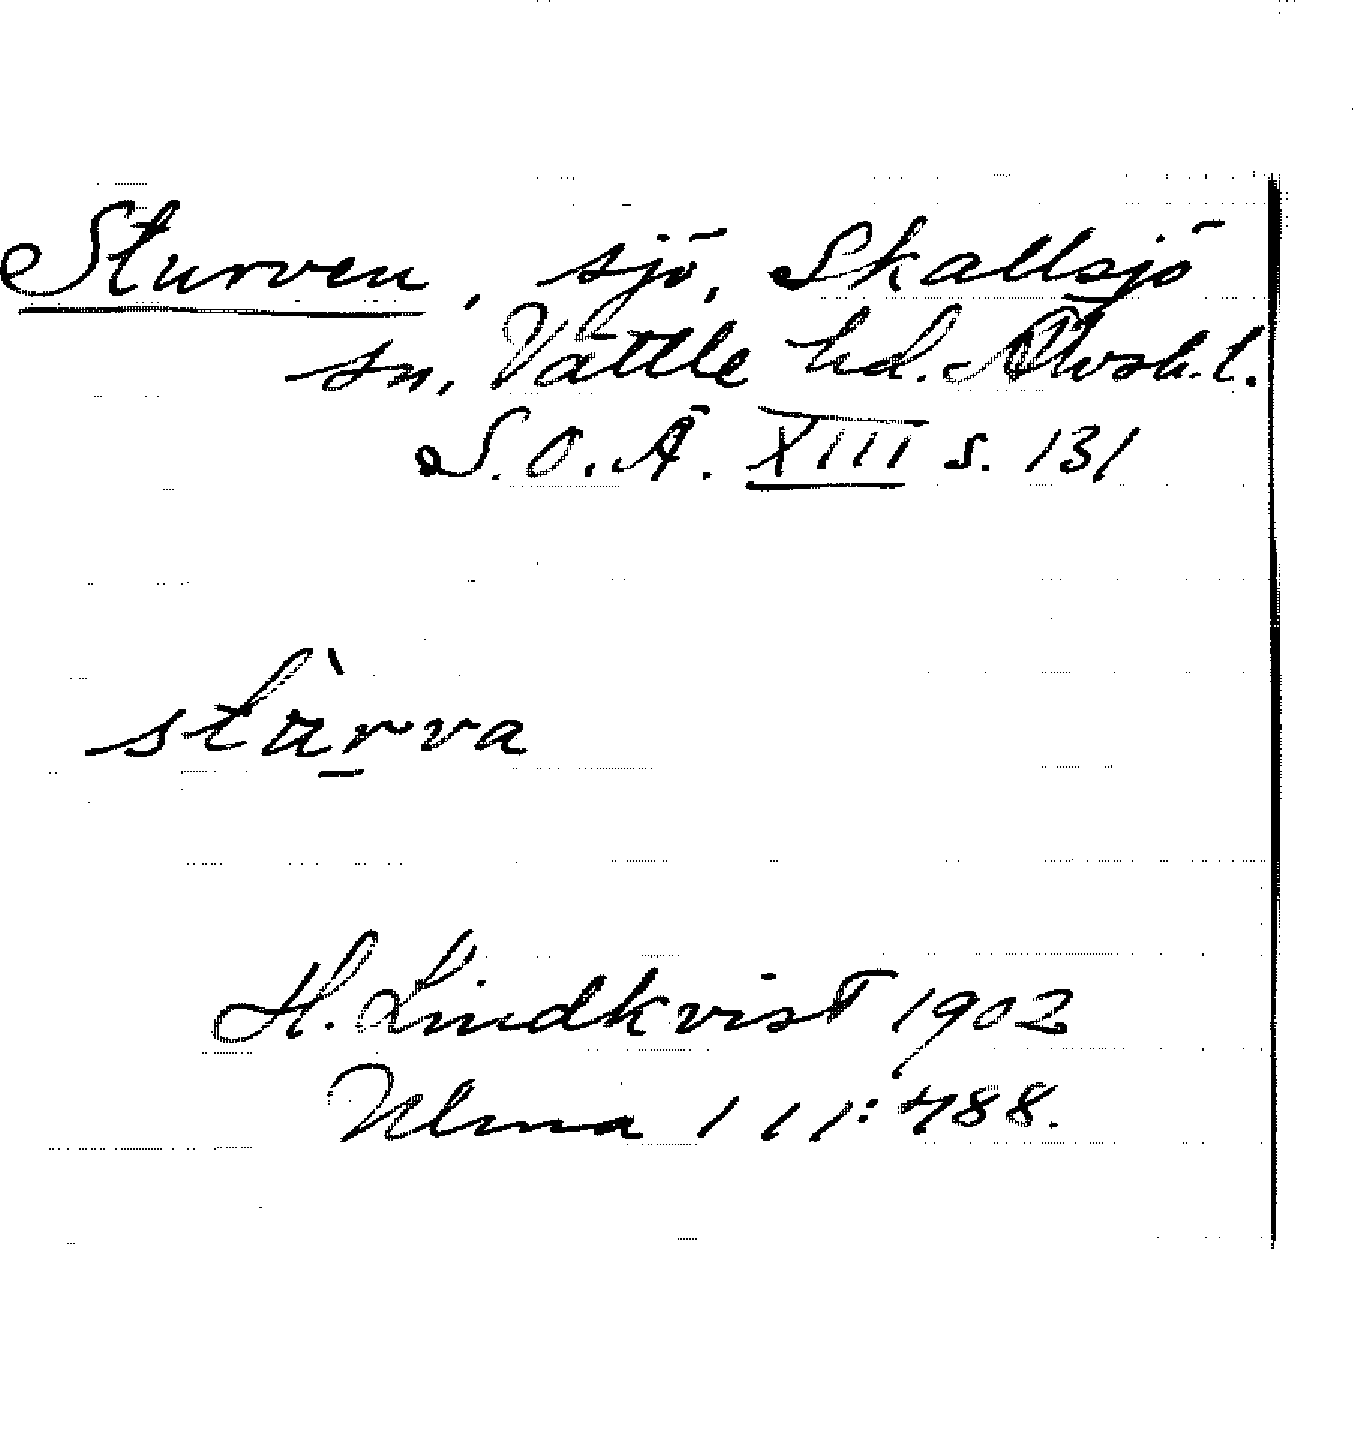 Sturven, sjö, Skallsjö
sn, Vättle hd. Älvsb.l.
S.O.Ä. XIII s. 131
stùrva
H. Lindkvist 1902
Ulma 111:488.